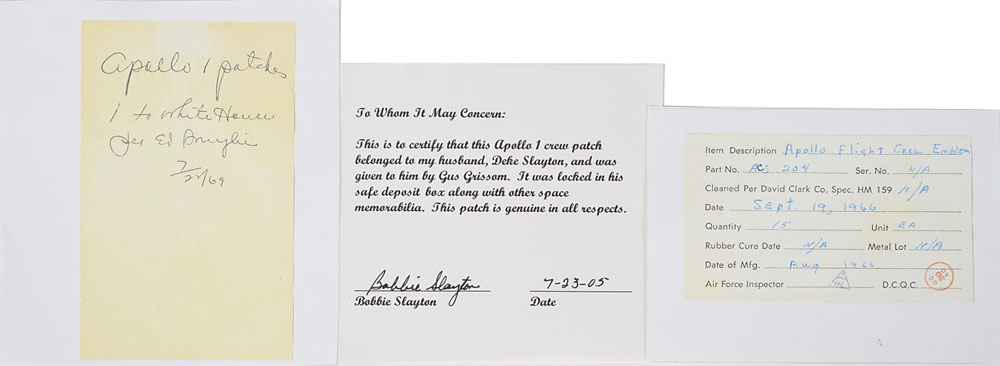 Apollo 1 patches
1 to White House
for Ed
7/22/69
To Whom It May Concern:
This is to certify that this Apollo 1 crew patch
belonged to my husband, Deke Slayton, and was
given to him by Gus Grissom. It was locked in his
safe deposit box along with other space
memorabilia. This patch is genuine in all respects.
Bobbie Slayton 7-23-05
Bobbie Slayton Date
Item Description Apollo Flight Crew Emblem
Part No. ACS 204 Ser. No. N/A
Cleaned Per David Clark Co. Spec. HM 159 N/A
Date Sept. 19, 1966
Quantity 15 Unit EA
Rubber Cure Date N/A Metal Lot N/A
Date of Mfg. Aug 1966
Air Force Inspector D.C.Q.C.